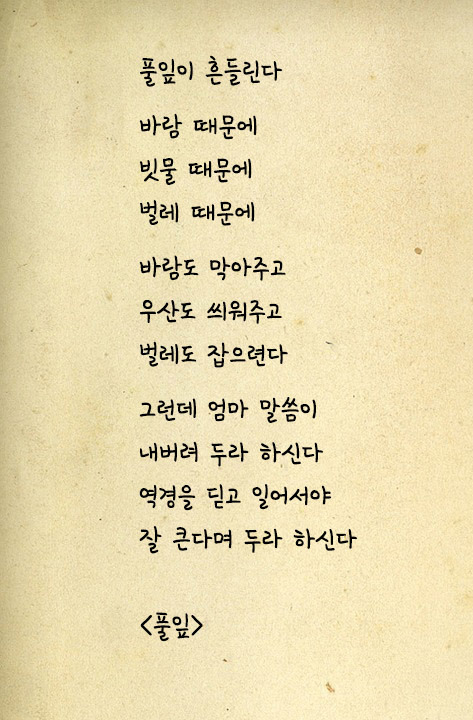 풀잎이 흔들린다
바람 때문에
빗물 때문에
벌레 때문에
바람도 막아주고
우산도 씌워주고
벌레도 잡으련다
그런데 엄마 말씀이
내버려 두라 하신다
역경을 딛고 일어서야
잘 큰다며 두라 하신다
<풀잎>